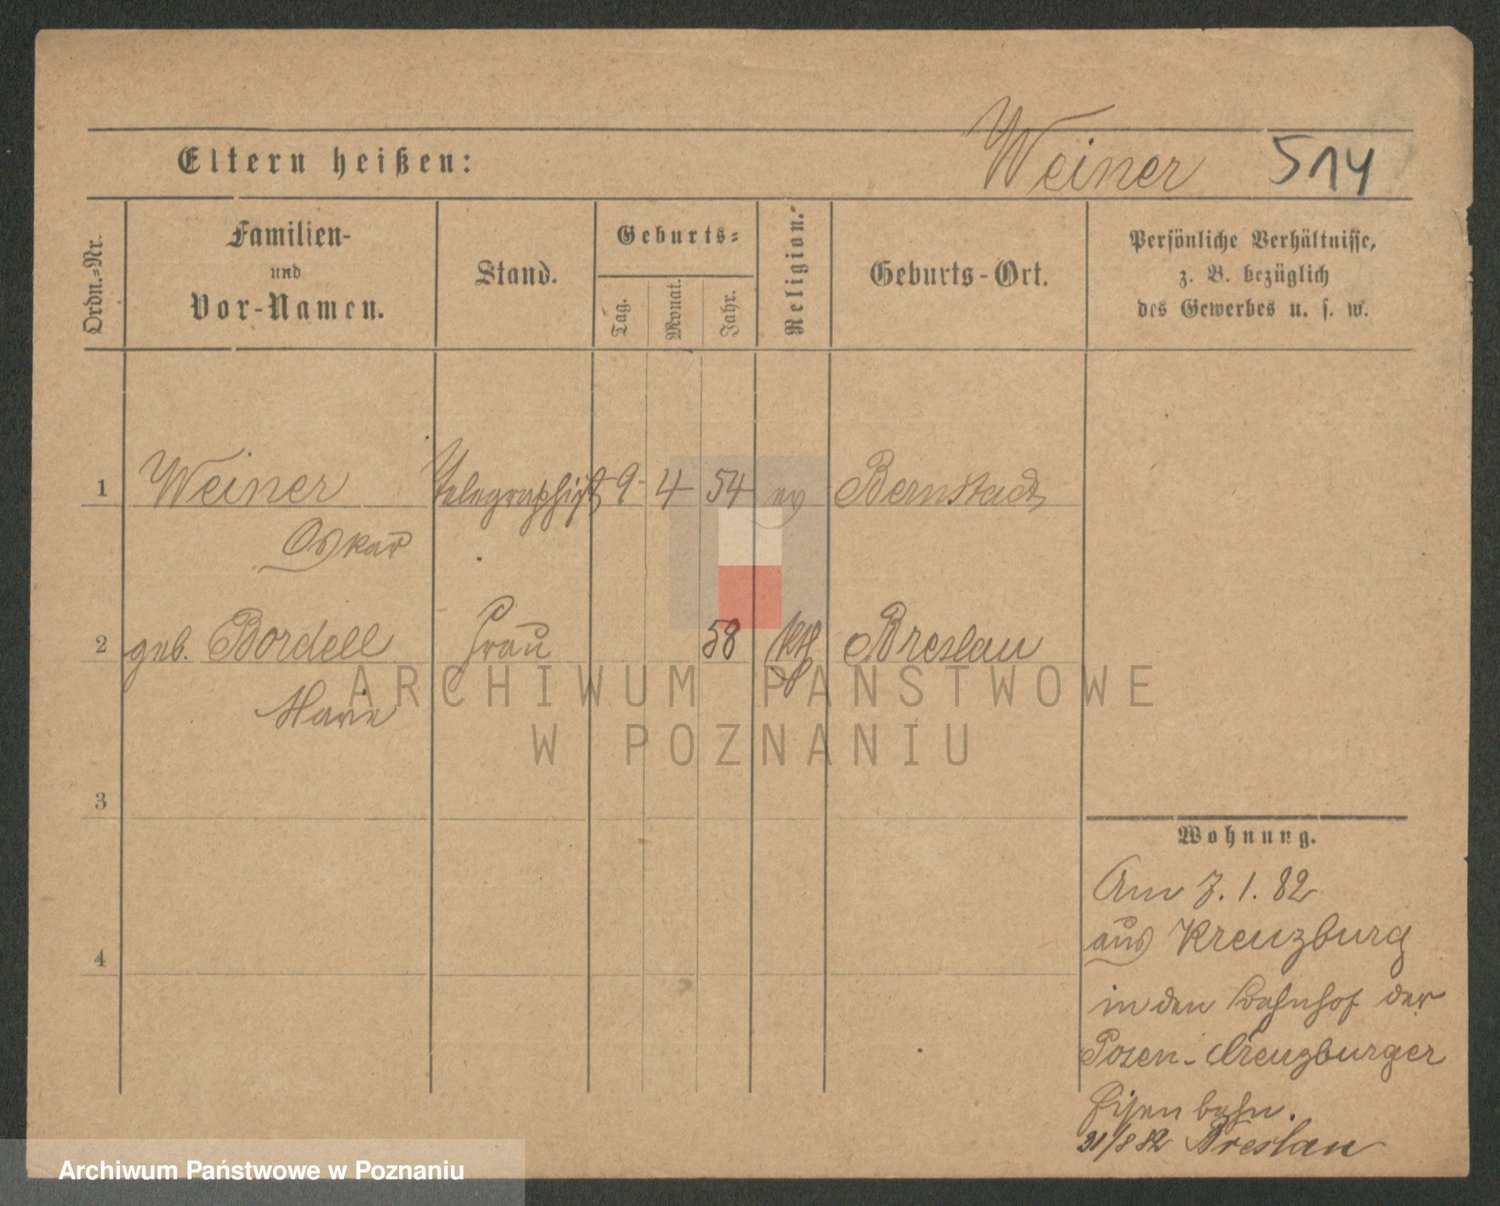 Eltern heißen: Weiner 514
Ordn.=Nr.
Familien-
und
Vor-Namen.
Stand.
Geburts=
Tag.
Monat.
Jahr.
Religion.
Geburts-Ort.
Persönliche Verhältnisse,
z. B. bezüglich
des Gewerbes u. s. w.
1 Weiner Telegraphist 9 4 54 ev Bernstadt
Oskar
2 geb. Bordell Frau 58 kth Breslau
Marie
ARCHIWUM PAŃSTWOWE
W POZNANIU
3
Wohnung.
Am 7. 1. 82
aus Kreuzburg
4
in den Bahnhof der
Posen-Creuzburger
Eisenbahn.
31/8 82 Breslau
Archiwum Państwowe w Poznaniu